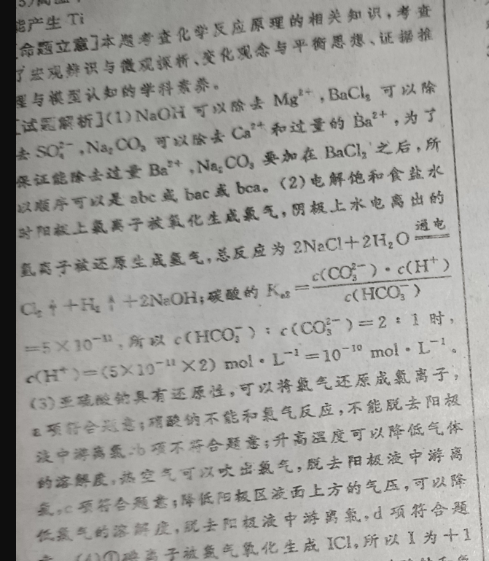 能产生 Ti
命题立意】本题考查化学反应原理的相关知识,考查
了宏观辨识与微观探析、变化观念与平衡思想、证据推
理与模型认知的学科素养。
【试题解析】(1)NaOH 可以除去 Mg²⁺,BaCl₂ 可以除
去 SO₄²⁻,Na₂CO₃ 可以除去 Ca²⁺ 和过量的 Ba²⁺,为了
保证能除去过量 Ba²⁺,Na₂CO₃ 要加在 BaCl₂ 之后,所
以顺序可以是 abc 或 bac 或 bca。(2)电解饱和食盐水
时阳极上氯离子被氧化生成氯气,阴极上水电离出的
氢离子被还原生成氢气,总反应为 2NaCl+2H₂O 通电
Cl₂↑+H₂↑+2NaOH;碳酸的 Kₐ₂=c(CO₃²⁻)·c(H⁺)/c(HCO₃⁻)
=5×10⁻¹¹,所以 c(HCO₃⁻):c(CO₃²⁻)=2:1 时,
c(H⁺)=(5×10⁻¹¹×2) mol·L⁻¹=10⁻¹⁰ mol·L⁻¹。
(3)亚硫酸钠具有还原性,可以将氯气还原成氯离子,
a 项符合题意;硝酸钠不能和氯气反应,不能脱去阳极
液中游离氯,b 项不符合题意;升高温度可以降低气体
的溶解度,热空气可以吹出氯气,脱去阳极液中游离
氯,c 项符合题意;降低阳极区液面上方的气压,可以降
低氯气的溶解度,脱去阳极液中游离氯,d 项符合题
离子被氯气氧化生成 ICl,所以 I 为+1